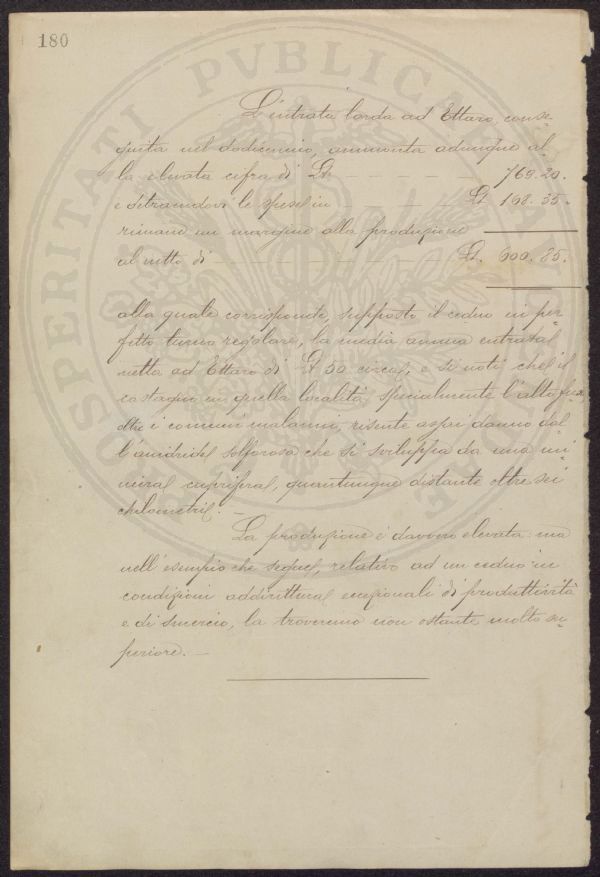 180
L'entrata lorda ad Ettaro, conse-
guita nel dodicennio, ammonta adunque al-
la elevata cifra di Lt. 769.20.
e detraendovi le spese in Lt. 168.35.
rimane un margine alla produzione
al netto di Lt. 600.85.
alla quale corrisponde, supposto il ceduo in per-
fetto turno regolare, la media annua entrata
netta ad Ettaro di Lt 50 circa, e si noti che il
castagno in quella località, specialmente l'alto fusto
oltre i comuni malanni, risente assai danno dal
l'anidride solforosa che si sviluppa da una mi-
niera cuprifera, quantunque distante oltre sei
chilometri. –
La produzione è davvero elevata ma
nell'esempio che segue, relativo ad un ceduo in
condizioni addirittura eccezionali di produttività
e di smercio, la troveremo non ostante molto su-
periore. –
PROSPERITATI PVBLICAE AVGENDAE